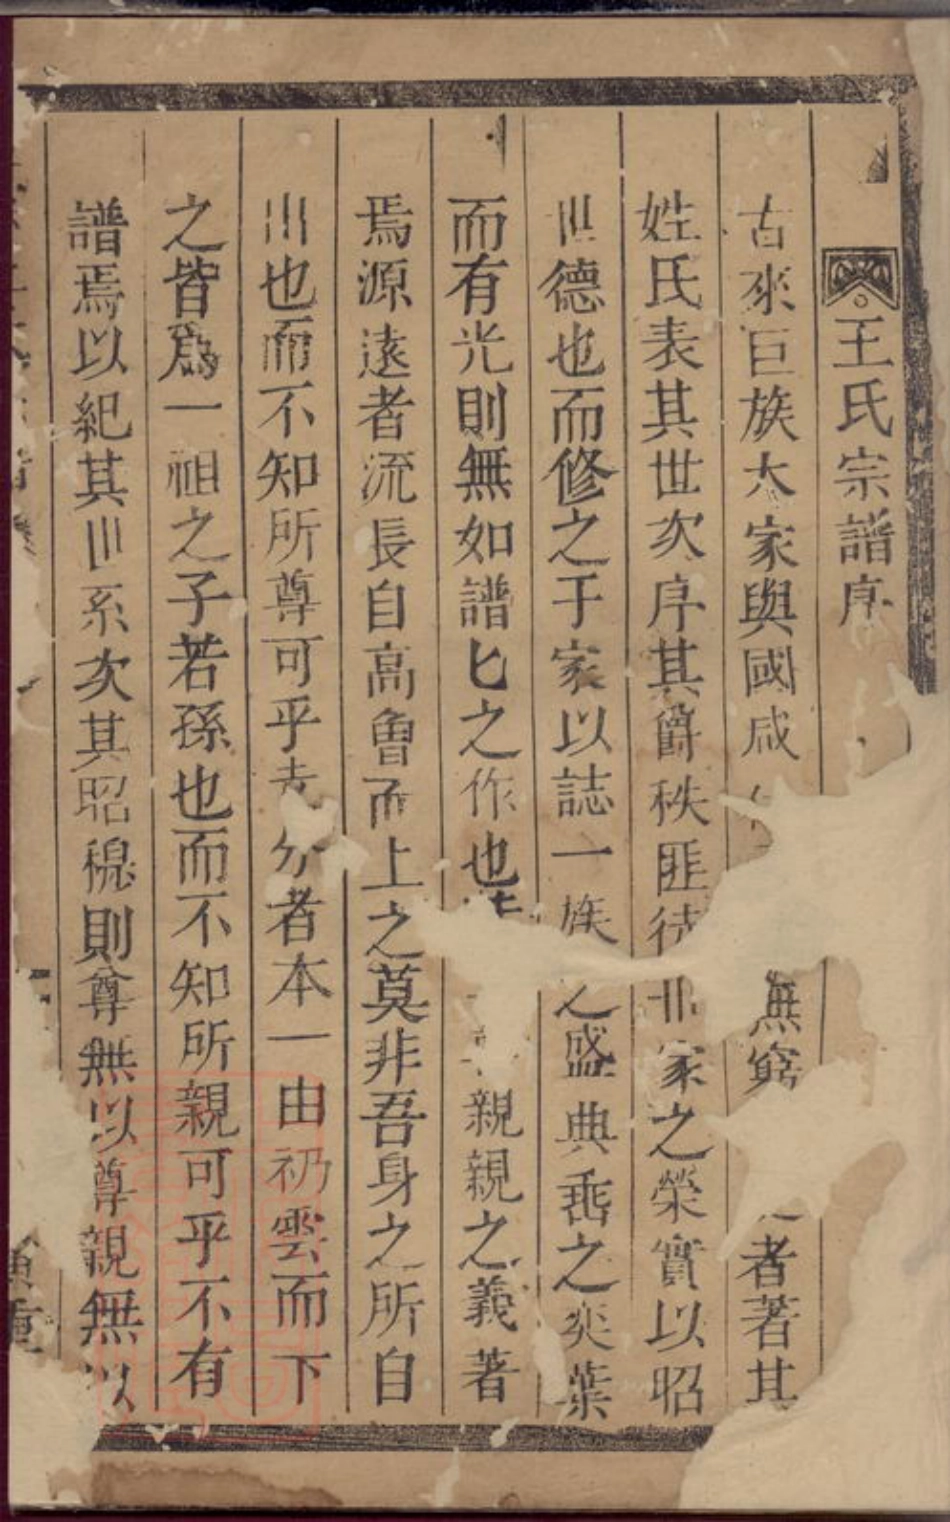 王氏宗譜序
古來巨族大家與國咸無窮者著其
姓氏表其世次序其爵秩匪徒非家之榮實以昭
世德也而修之于家以誌一族之盛典乖之奕葉
而有光則無如譜匕之作也親親之義著
焉源遠者流長自高曾而上之莫非吾身之所自
出也而不知所尊可乎支分者本一由礽雲而下
之皆爲一祖之子若孫也而不知所親可乎不有
譜焉以紀其世系次其昭穆則尊無以尊親無以